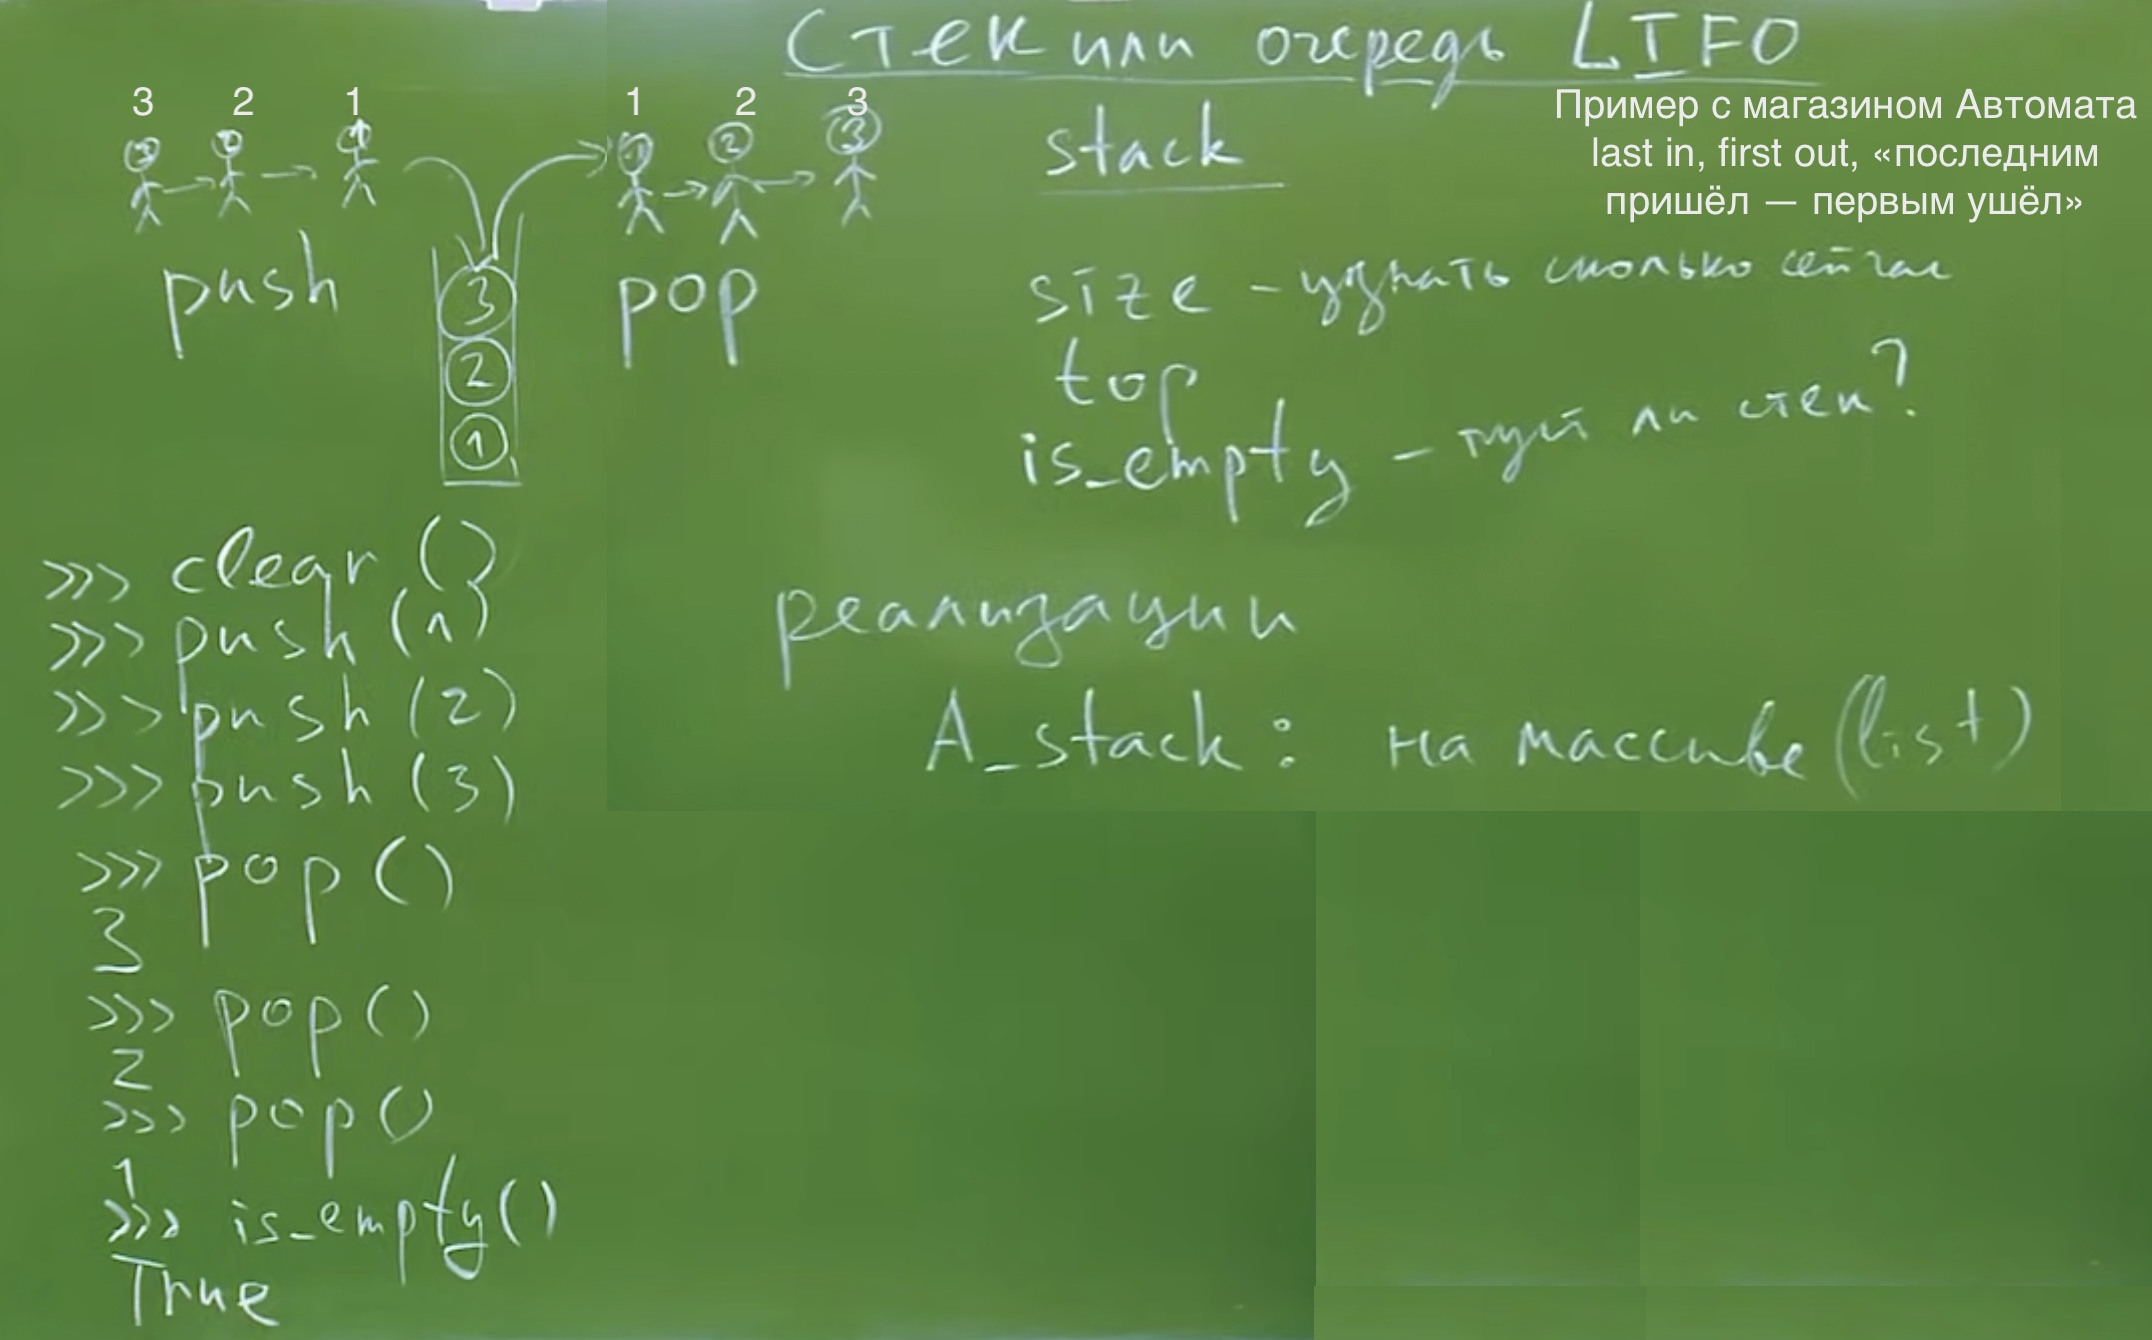 Стек или очередь LIFO
3 2 1
1 2 3
3 2 1
1 2 3
stack
Пример с магазином Автомата
last in, first out, «последним
пришёл — первым ушёл»
push
pop
3
2
1
size - узнать сколько сейчас
top
is_empty - пуст ли стек?
>>> clear()
>>> push(1)
>>> push(2)
>>> push(3)
>>> pop()
3
>>> pop()
2
>>> pop()
1
>>> is_empty()
True
реализации
A_stack: на массиве (list)